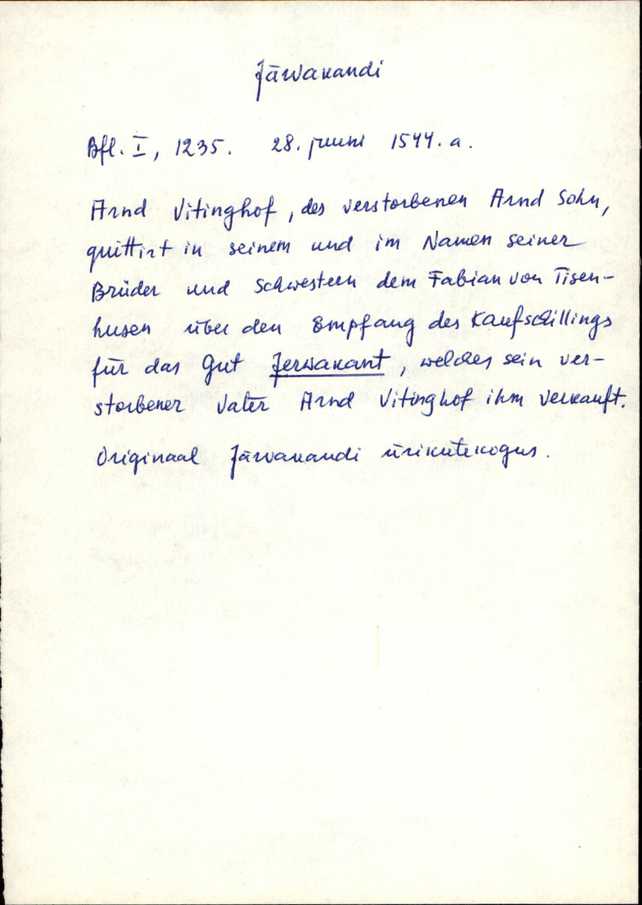 Järvakandi
Bfl. I, 1235. 28. juuni 1544. a.
Arnd Vitinghof, des verstorbenen Arnd Sohn,
quittirt in seinem und im Namen seiner
Brüder und Schwestern dem Fabian von Tisen-
husen über den Empfang des Kaufschillings
für das Gut Jerwakant, welches sein ver-
storbener Vater Arnd Vitinghof ihm verkauft.
Originaal Järvakandi ürikutekogus.